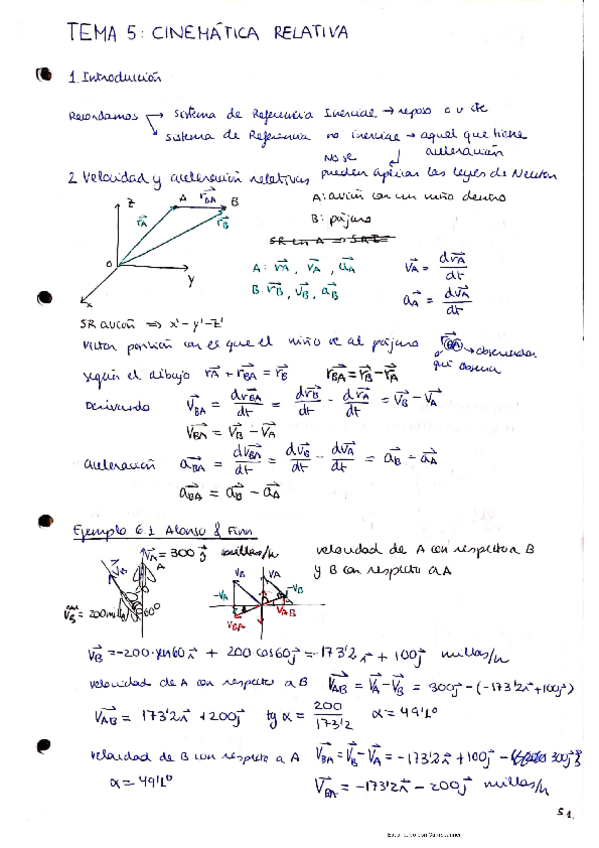 TEMA 5: CINEMÁTICA RELATIVA
1. Introducción
Recordamos → Sistema de Referencia Inercial → reposo o v cte
↘ sistema de Referencia no inercial → aquel que tiene aceleración
No se pueden aplicar las leyes de Newton
2. Velocidad y aceleración relativas
A: avión con un niño dentro
B: pájaro
z A r⃗BA B
r⃗A r⃗B
O y
x
A: r⃗A, v⃗A, a⃗A v⃗A = dr⃗A/dt
B: r⃗B, v⃗B, a⃗B a⃗A = dv⃗A/dt
SR avión ⇒ x'-y'-z'
Vector posición con es que el niño ve al pájaro r⃗BA → observador
que observa
según el dibujo r⃗A + r⃗BA = r⃗B r⃗BA = r⃗B - r⃗A
Derivando v⃗BA = dr⃗BA/dt = dr⃗B/dt - dr⃗A/dt = v⃗B - v⃗A
v⃗BA = v⃗B - v⃗A
aceleración a⃗BA = dv⃗BA/dt = dv⃗B/dt - dv⃗A/dt = a⃗B - a⃗A
a⃗BA = a⃗B - a⃗A
Ejemplo 6.1 Alonso & Finn
v⃗A = 300 j⃗ millas/h
velocidad de A con respecto a B
y B con respecto a A
v⃗B A
v⃗B = 200 60º
vB vA -vB
-vA vAB
vBA
v⃗B = -200·sen60 i⃗ + 200 cos60 j⃗ = -173'2 i⃗ + 100 j⃗ millas/h
velocidad de A con respecto a B v⃗AB = v⃗A - v⃗B = 300j⃗ - (-173'2i⃗ + 100j⃗)
v⃗AB = 173'2 i⃗ + 200 j⃗ tg α = 200/173'2 α = 49'1º
velocidad de B con respecto a A v⃗BA = v⃗B - v⃗A = -173'2 i⃗ + 100 j⃗ - 300 j⃗
α = 49'1º v⃗BA = -173'2 i⃗ - 200 j⃗ millas/h
5.1.